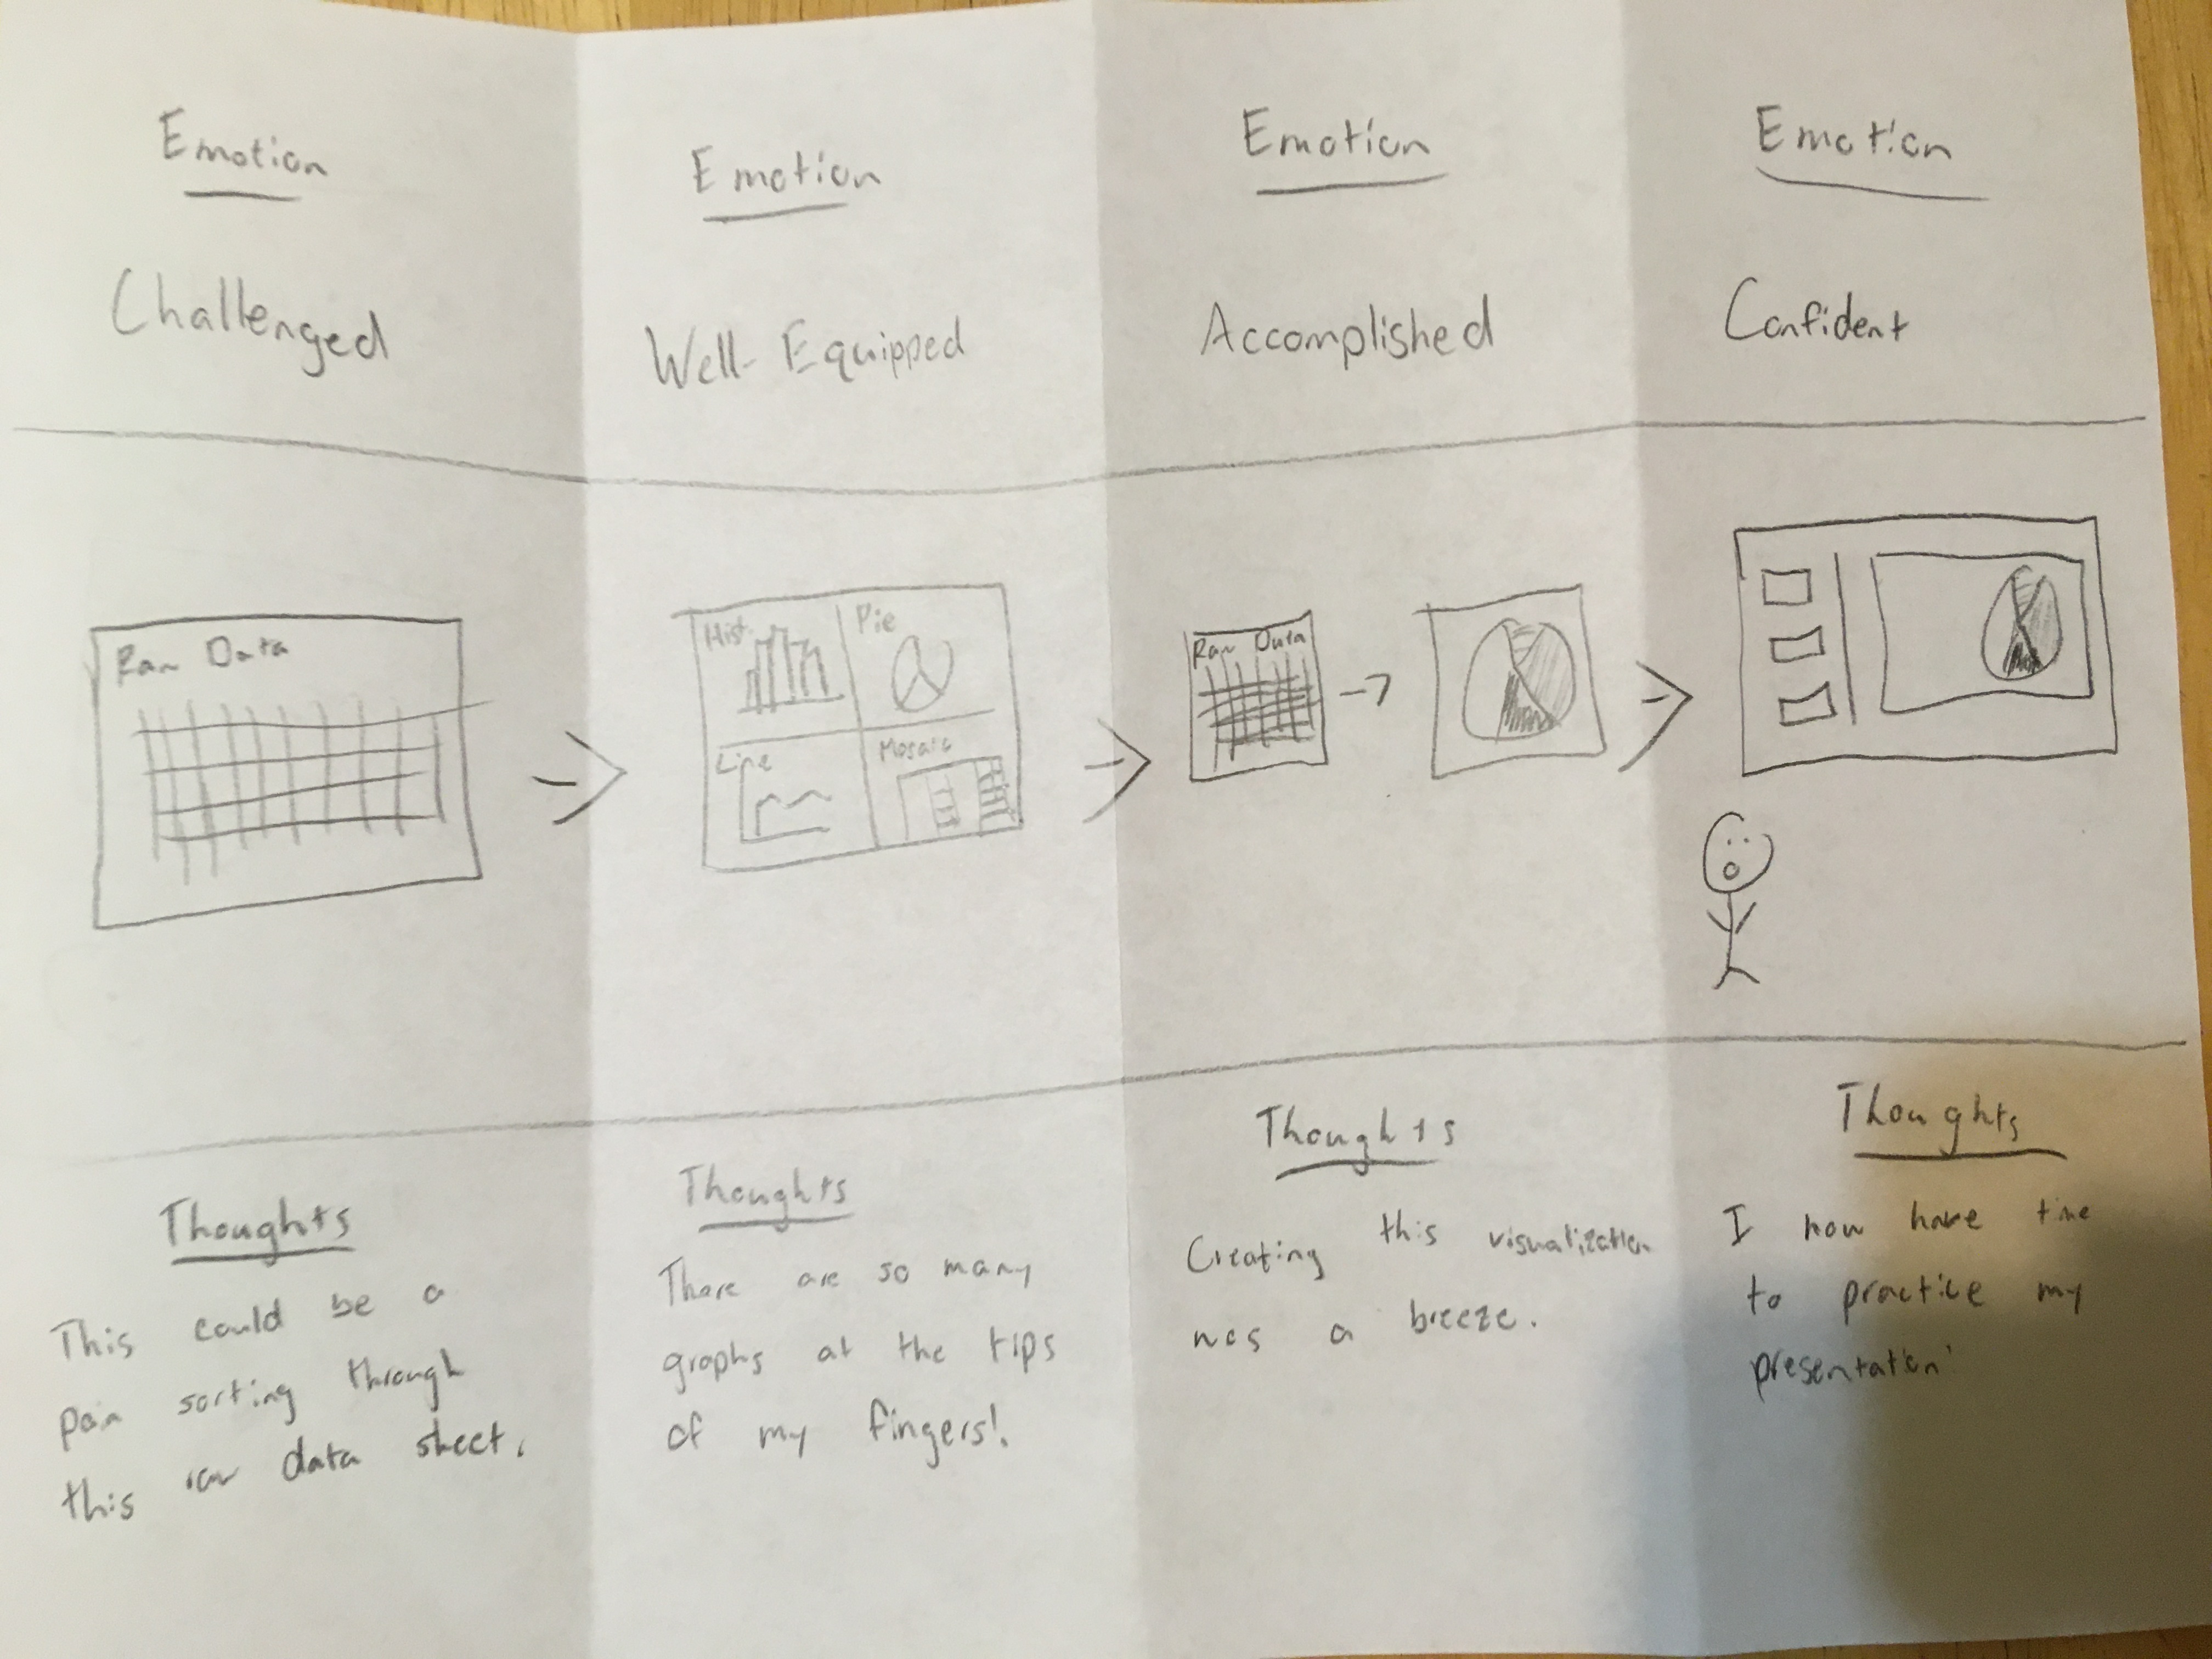 Emotion
Challenged
Raw Data
Thoughts
This could be a
pain sorting through
this raw data sheet.
Emotion
Well-Equipped
Hist
Pie
Line
Mosaic
Thoughts
There are so many
graphs at the tips
of my fingers!
Emotion
Accomplished
Raw Data
Thoughts
Creating this visualization
was a breeze.
Emotion
Confident
Thoughts
I now have time
to practice my
presentation